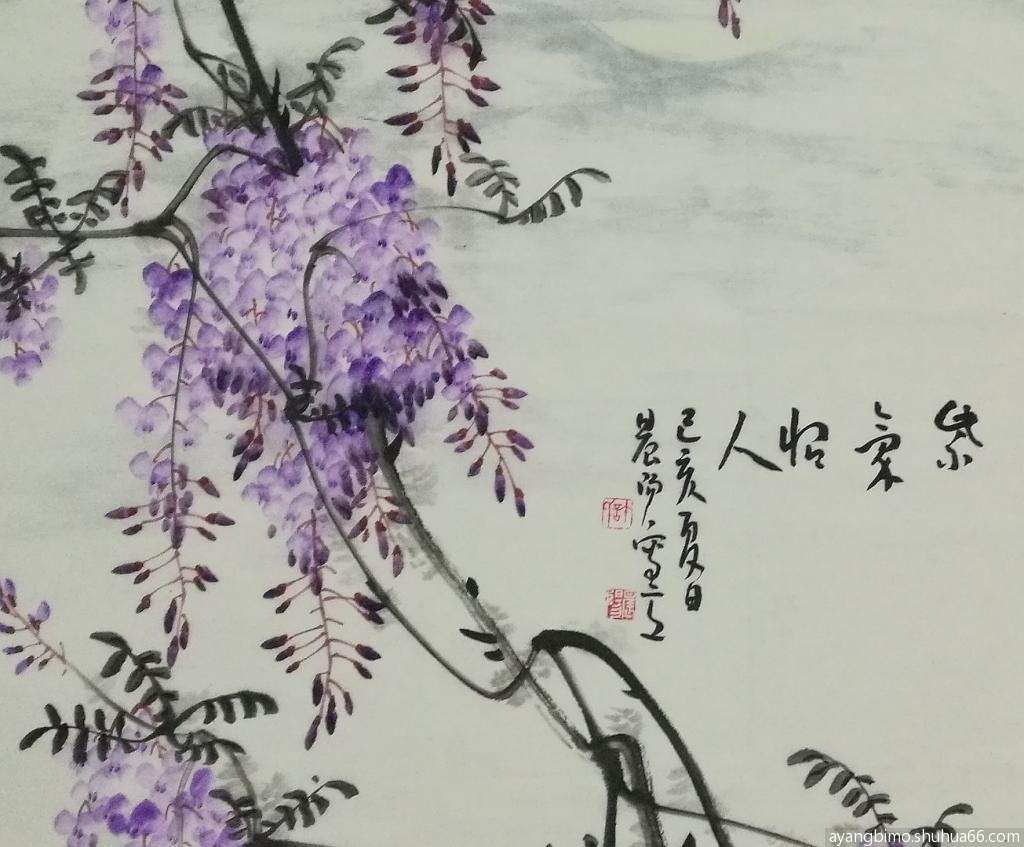 紫氣怡人
己亥夏日
晨陽寫之
ayangbimo.shuhua66.com